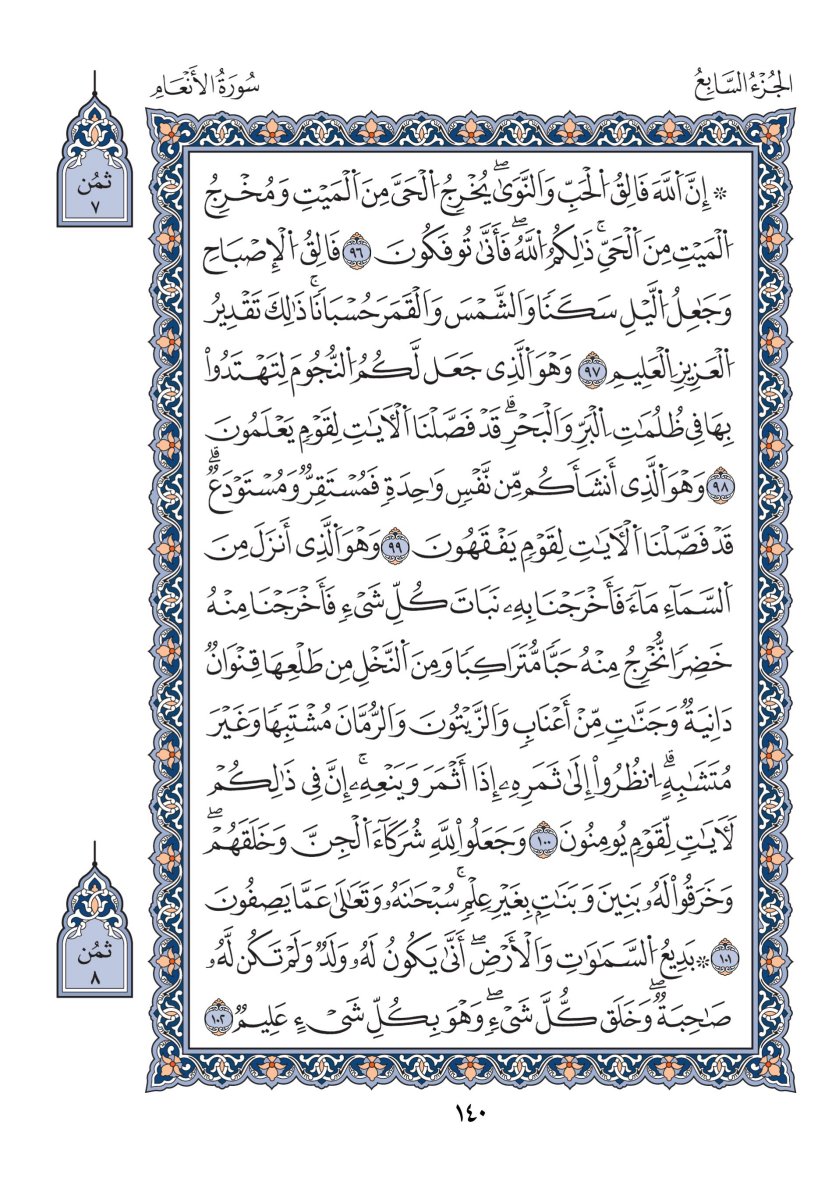 الجُزْءُ السَّابِعُ
سُورَةُ الأَنْعَامِ
ثمُن
٧
۞ إِنَّ اَللَّهَ فَالِقُ اُلْحَبِّ وَالنَّوَىٰۖ يُخْرِجُ اُلْحَيَّ مِنَ اَلْمَيْتِ وَمُخْرِجُ
اُلْمَيْتِ مِنَ اَلْحَيِّۚ ذَٰلِكُمُ اُللَّهُۖ فَأَنَّىٰ تُوفَكُونَ ٩٦ فَالِقُ اُلْإِصْبَاحِ
وَجَٰعِلُ اُلَّيْلِ سَكَنٗا وَالشَّمْسَ وَالْقَمَرَ حُسْبَانٗاۚ ذَٰلِكَ تَقْدِيرُ
اُلْعَزِيزِ اِلْعَلِيمِ ٩٧ وَهُوَ اَلَّذِي جَعَل لَّكُمُ اُلنُّجُومَ لِتَهْتَدُواْ
بِهَا فِي ظُلُمَٰتِ اِلْبَرِّ وَالْبَحْرِۗ قَدْ فَصَّلْنَا اَلْأٓيَٰتِ لِقَوْمٖ يَعْلَمُونَ
٩٨ وَهُوَ اَلَّذِي أَنشَأَكُم مِّن نَّفْسٖ وَٰحِدَةٖ فَمُسْتَقِرّٞ وَمُسْتَوْدَعٞۗ
قَدْ فَصَّلْنَا اَلْأٓيَٰتِ لِقَوْمٖ يَفْقَهُونَ ٩٩ وَهُوَ اَلَّذِي أَنزَلَ مِنَ
اَلسَّمَآءِ مَآءٗ فَأَخْرَجْنَا بِهِۦ نَبَاتَ كُلِّ شَيْءٖ فَأَخْرَجْنَا مِنْهُ
خَضِرٗا نُّخْرِجُ مِنْهُ حَبّٗا مُّتَرَاكِبٗا وَمِنَ اَلنَّخْلِ مِن طَلْعِهَا قِنْوَانٞ
دَانِيَةٞ وَجَنَّٰتٖ مِّنْ أَعْنَابٖ وَالزَّيْتُونَ وَالرُّمَّانَ مُشْتَبِهٗا وَغَيْرَ
مُتَشَٰبِهٍۗ اِنظُرُواْ إِلَىٰ ثَمَرِهِۦ إِذَا أَثْمَرَ وَيَنْعِهِۦۚ إِنَّ فِي ذَٰلِكُمْ
لَأٓيَٰتٖ لِّقَوْمٖ يُومِنُونَ ١٠٠ وَجَعَلُواْ لِلَّهِ شُرَكَآءَ اَلْجِنَّ وَخَلَقَهُمْۖ
وَخَرَقُواْ لَهُۥ بَنِينَ وَبَنَٰتِۢ بِغَيْرِ عِلْمٖۚ سُبْحَٰنَهُۥ وَتَعَٰلَىٰ عَمَّا يَصِفُونَ
١٠١ ۞ بَدِيعُ اُلسَّمَٰوَٰتِ وَالْأَرْضِۖ أَنَّىٰ يَكُونُ لَهُۥ وَلَدٞ وَلَمْ تَكُن لَّهُۥ
صَٰحِبَةٞۖ وَخَلَق كُّلَّ شَيْءٖۖ وَهُوَ بِكُلِّ شَيْءٍ عَلِيمٞ ١٠٢
ثمُن
٨
١٤٠